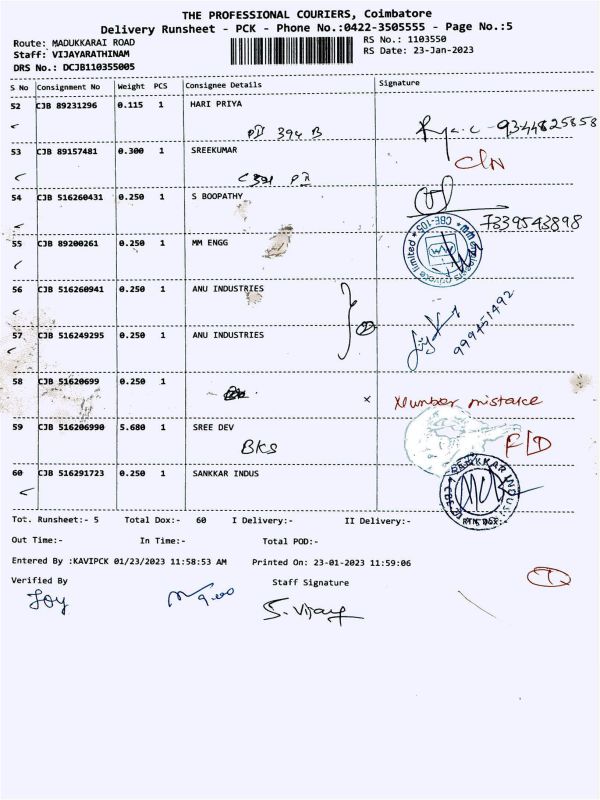 THE PROFESSIONAL COURIERS, Coimbatore
Delivery Runsheet - PCK - Phone No.:0422-3505555 - Page No.:5
Route: MADUKKARAI ROAD
RS No.: 1103550
Staff: VIJAYARATHINAM
RS Date: 23-Jan-2023
DRS No.: DCJB110355005
S No Consignment No Weight PCS Consignee Details Signature
52 CJB 89231296 0.115 1 HARI PRIYA
394 B 9344825858
53 CJB 89157481 0.300 1 SREEKUMAR
54 CJB 516260431 0.250 1 S BOOPATHY
7339543898
55 CJB 89200261 0.250 1 MM ENGG
56 CJB 516260941 0.250 1 ANU INDUSTRIES
57 CJB 516249295 0.250 1 ANU INDUSTRIES
58 CJB 51620699 0.250 1
x Number mistake
59 CJB 516206990 5.680 1 SREE DEV
BKS
60 CJB 516291723 0.250 1 SANKKAR INDUS
Tot. Runsheet:- 5 Total Dox:- 60 I Delivery:- II Delivery:-
Out Time:- In Time:- Total POD:-
Entered By :KAVIPCK 01/23/2023 11:58:53 AM Printed On: 23-01-2023 11:59:06
Verified By Staff Signature
Joy
S. Vijay